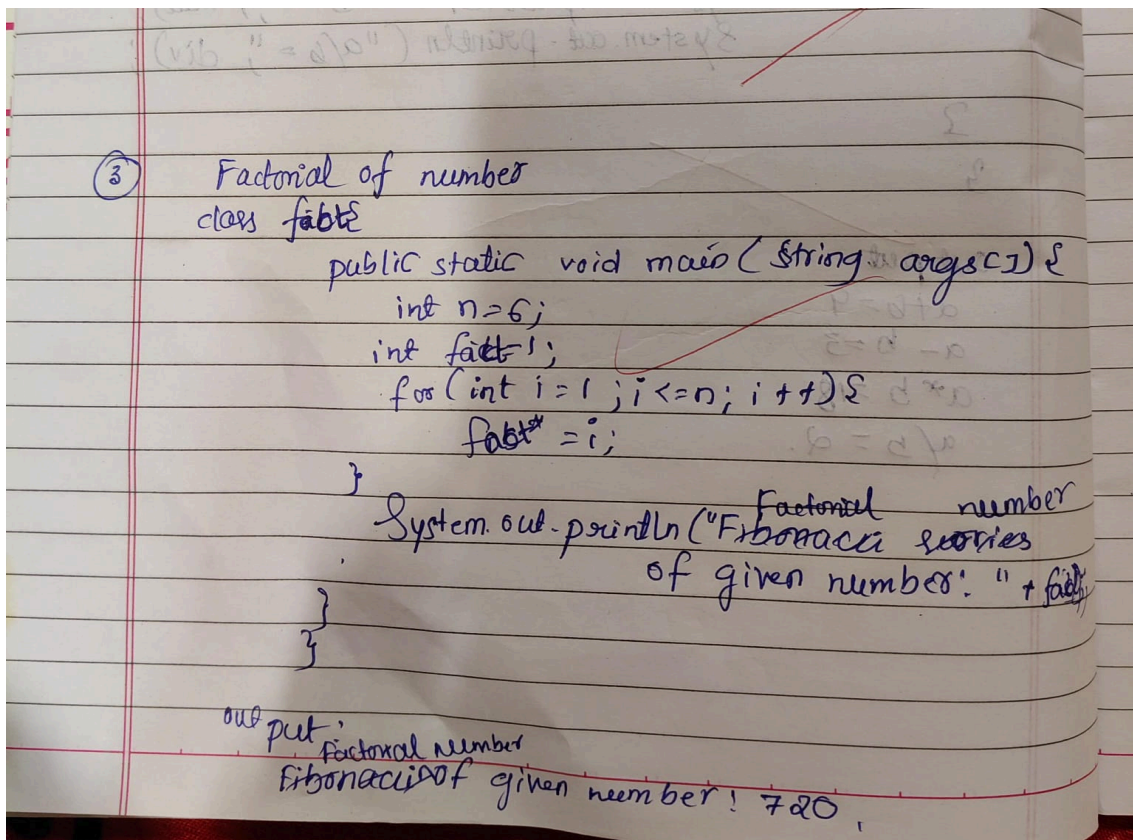 3
Factorial of number
class fact{
public static void main (String args[]) {
int n=6;
int fact=1;
for (int i=1; i<=n; i++){
fact* =i;
}
Factorial number
System.out.println("Fibonacci series
of given number: " + fact);
}
}
output:
Factorial number
Fibonacci of given number: 720.